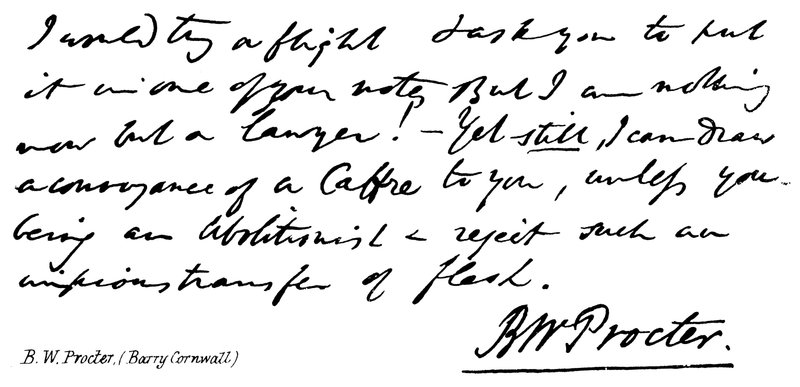 I would try a flight & ask you to put
it in one of your notes But I am nothing
now but a lawyer! – Yet still, I can draw
a conveyance of a Caffre to you, unless you
being an Abolitionist & reject such an
impious transfer of flesh.
BW Procter.
B. W. Procter, (Barry Cornwall)